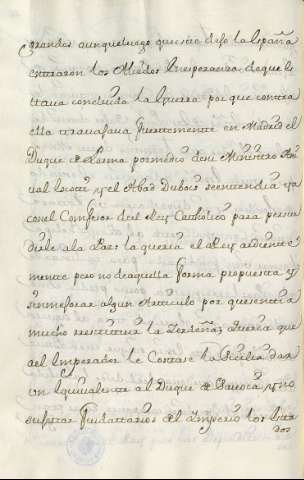 grandes aunque luego que se dexo la España
entraron los Aliados en esperanza de que es
tava concluida la Guerra por que contra
ella travajava fuertemente en Madrid el
Duque de Parma por medio de su Ministro An
ual Scotti, y el Abad Dubois se entendia ya
con el Confesor del Rey Catholico para persua
dirle a la Paz: la queria el Rey ardiente
mente pero no de aquella forma propuesta y
sin mejorar algun Articulo por que sentia
mucho restituir la Zerdeña, y queria que
del Imperador le Costase la Sicilia dar
un equivalente al Duque de Savoya, y no
sujetar feudatarios del Imperio los Esta
dos